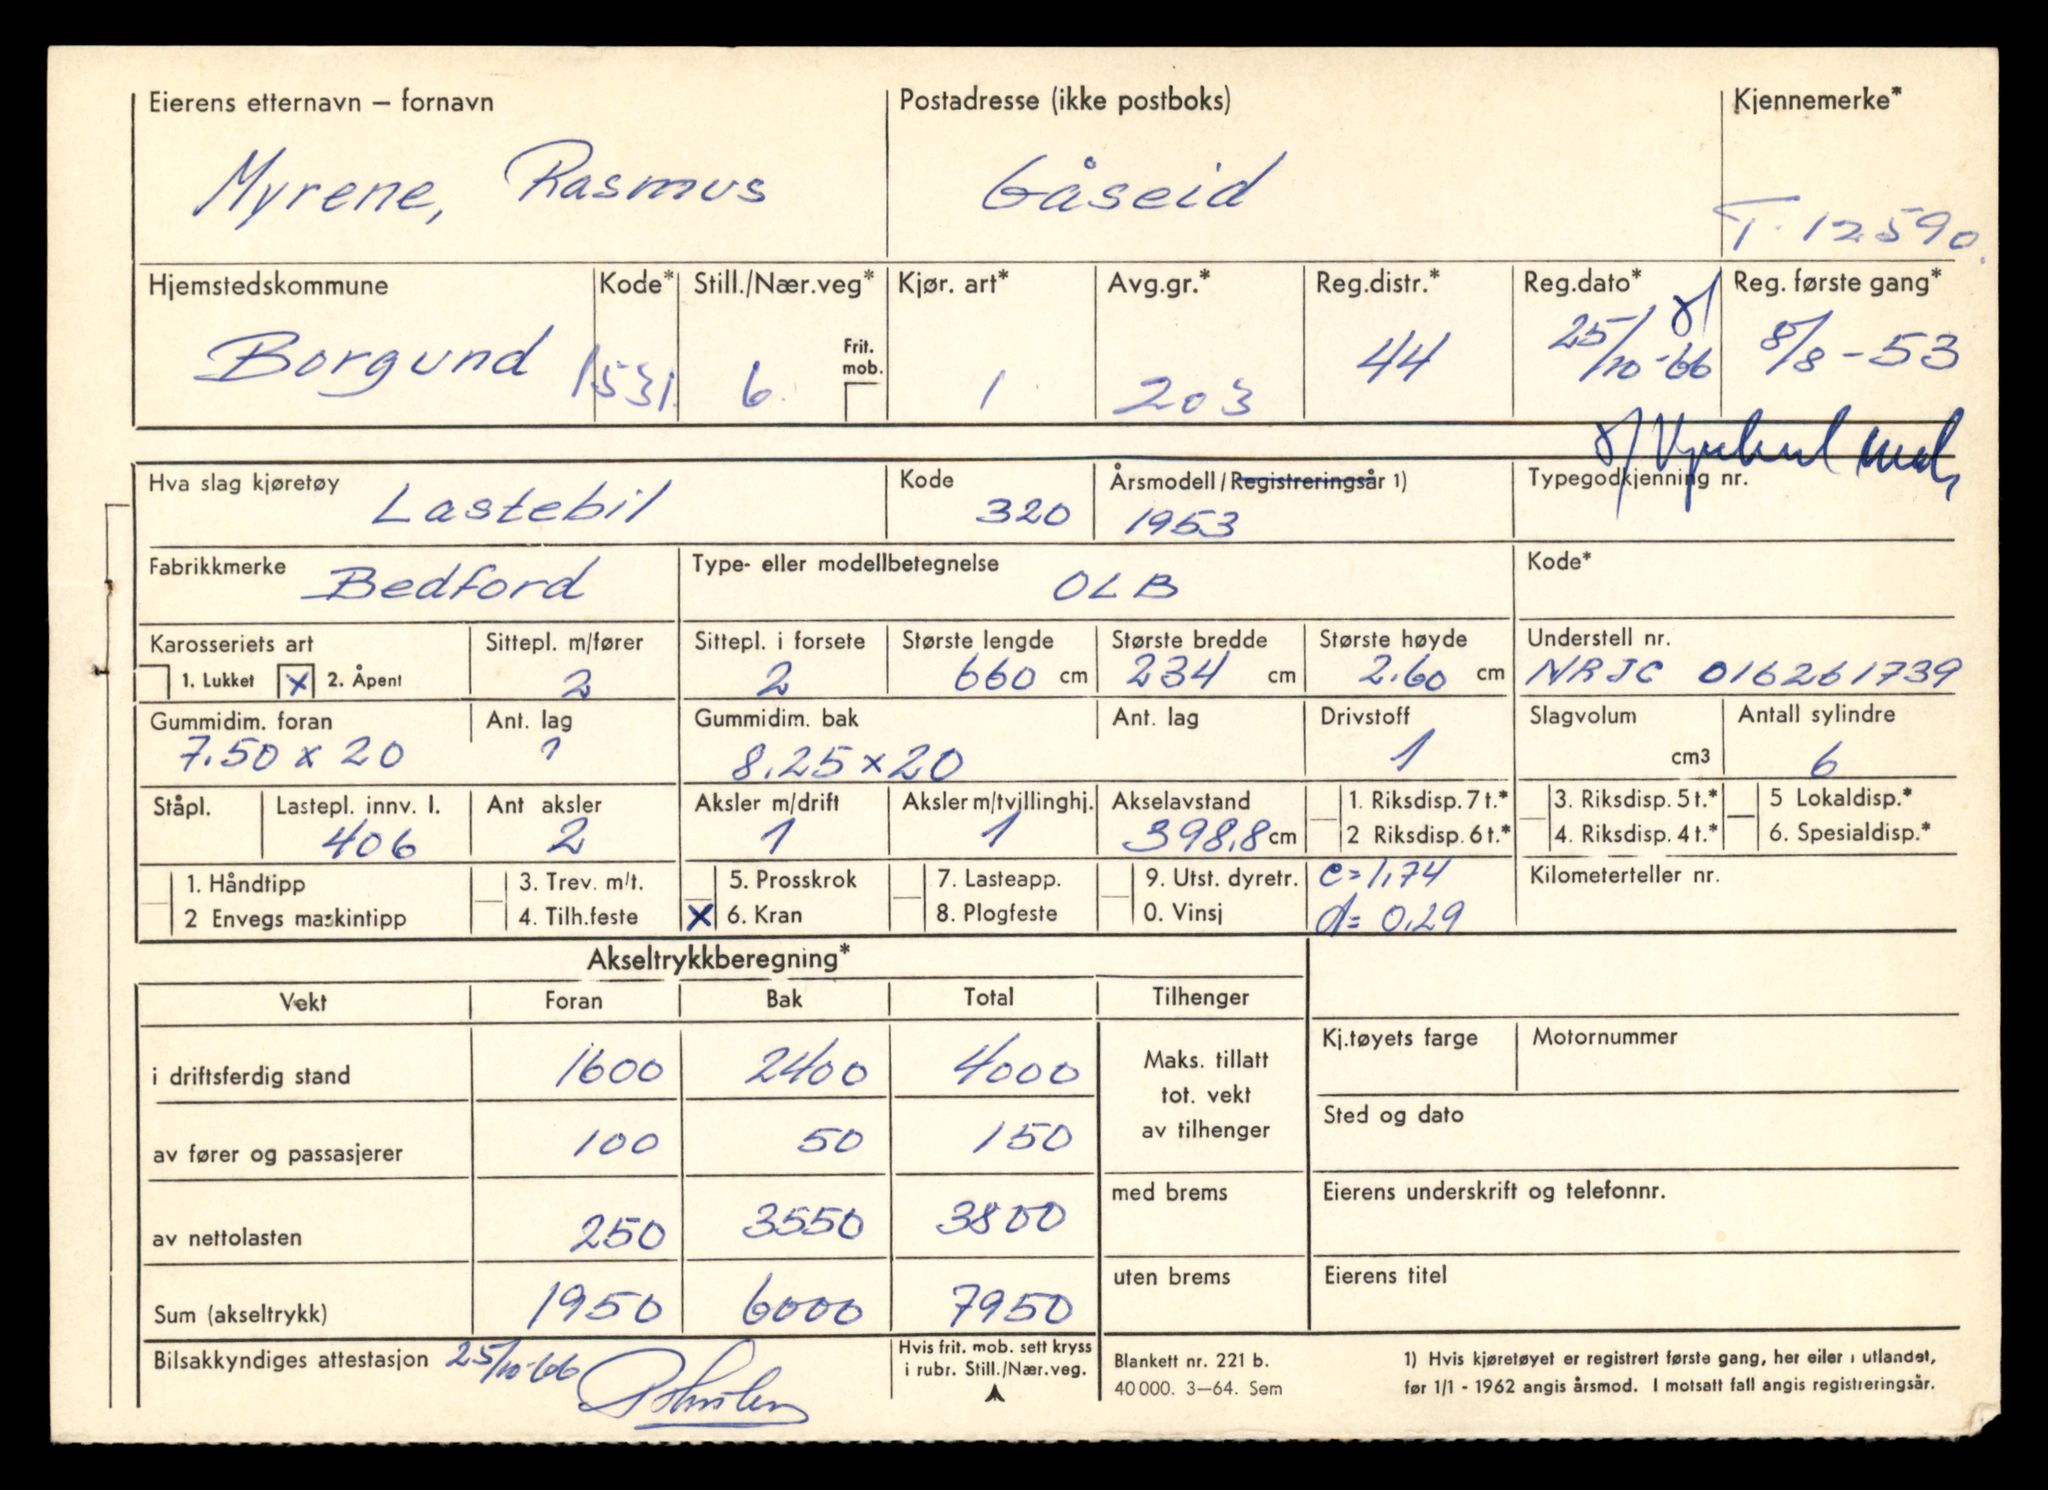 Eierens etternavn – fornavn Postadresse (ikke postboks) Kjennemerke*
Myrene, Rasmus Gåseid T. 12590
Hjemstedskommune Kode* Still./Nær.veg* Kjør. art* Avg.gr.* Reg.distr.* Reg.dato* Reg. første gang*
Borgund 1531 6 Frit. mob. 1 203 44 25/10-66 8/8-53
Hva slag kjøretøy Kode Årsmodell/Registreringsår 1) Typegodkjenning nr.
Lastebil 320 1953
Fabrikkmerke Type- eller modellbetegnelse Kode*
Bedford OLB
Karosseriets art Sittepl. m/fører Sittepl. i forsete Største lengde Største bredde Største høyde Understell nr.
1. Lukket x 2. Åpent 2 2 660 cm 234 cm 2.60 cm NRJC 016261739
Gummidim. foran Ant. lag Gummidim. bak Ant. lag Drivstoff Slagvolum Antall sylindre
7.50 x 20 ? 8.25 x 20 1 cm3 6
Ståpl. Lastepl. innv. l. Ant aksler Aksler m/drift Aksler m/tvillinghj. Akselavstand 1. Riksdisp. 7 t.* 3. Riksdisp. 5 t.* 5 Lokaldisp.*
406 2 1 1 398.8 cm 2 Riksdisp. 6 t.* 4. Riksdisp. 4 t.* 6. Spesialdisp.*
1. Håndtipp 3. Trev. m/t. 5. Prosskrok 7. Lasteapp. 9. Utst. dyretr. c=1.74 Kilometerteller nr.
2 Envegs maskintipp 4. Tilh.feste x 6. Kran 8. Plogfeste 0. Vinsj d=0.29
Akseltrykkberegning*
Vekt Foran Bak Total Tilhenger
i driftsferdig stand 1600 2400 4000 Maks. tillatt Kj.tøyets farge Motornummer
tot. vekt
av fører og passasjerer 100 50 150 av tilhenger Sted og dato
av nettolasten 250 3550 3800 med brems Eierens underskrift og telefonnr.
Sum (akseltrykk) 1950 6000 7950 uten brems Eierens titel
Bilsakkyndiges attestasjon 25/10-66 Hvis frit. mob. sett kryss
i rubr. Still./Nær.veg.
Blankett nr. 221 b. 1) Hvis kjøretøyet er registrert første gang, her eller i utlandet,
40000. 3–64. Sem før 1/1 - 1962 angis årsmod. I motsatt fall angis registreringsår.